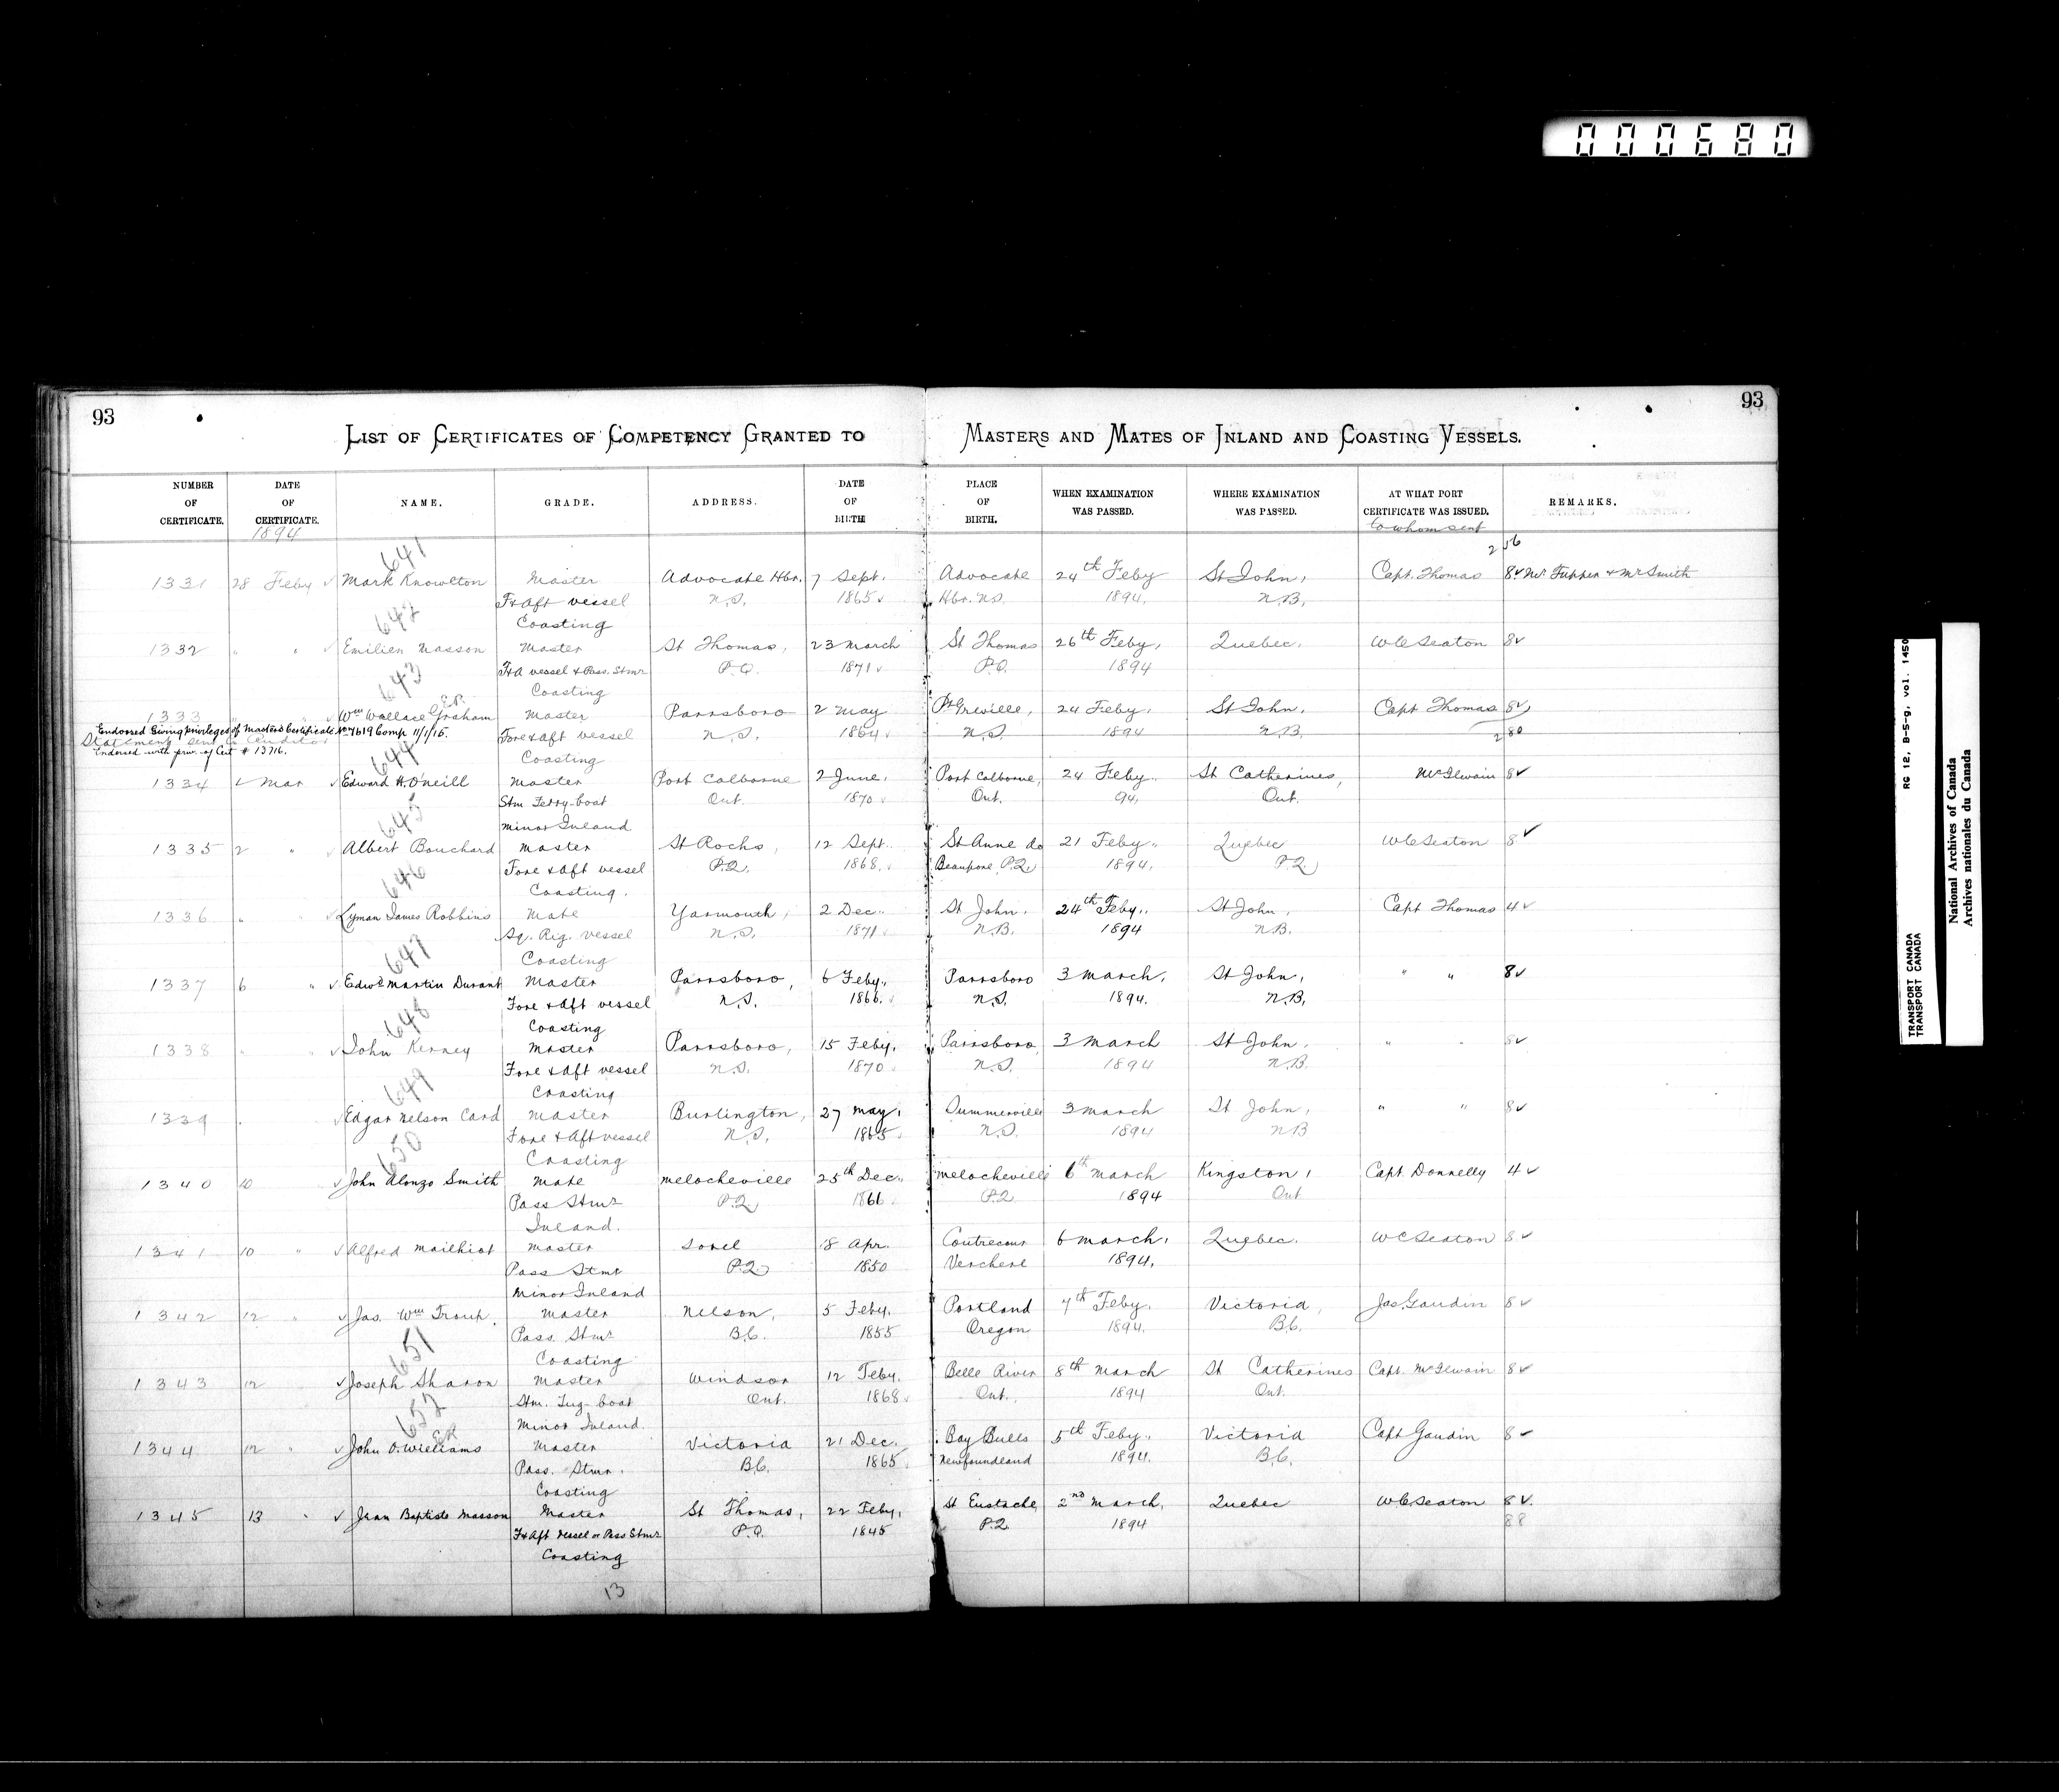 000680
93
93
LIST OF CERTIFICATES OF COMPETENCY GRANTED TO MASTERS AND MATES OF INLAND AND COASTING VESSELS.
NUMBER OF CERTIFICATE. DATE OF CERTIFICATE. NAME. GRADE. ADDRESS. DATE OF BIRTH PLACE OF BIRTH. WHEN EXAMINATION WAS PASSED. WHERE EXAMINATION WAS PASSED. AT WHAT PORT CERTIFICATE WAS ISSUED. REMARKS.
1894 to whom sent
641 256
1331 28 Feby ✓ Mark Knowlton Master Advocate Hbr. 7 Sept. Advocate 24th Feby St John, Capt. Thomas 8✓ Mr Tupper & Mr Smith
F&Aft vessel N.S. 1865 ✓ Hbr. N.S. 1894. N.B.
642 Coasting
1332 " " ✓ Emilien Masson Master St Thomas, 23 March St Thomas 26th Feby, Quebec. W C Seaton 8✓
F&A vessel & Pass. Stmr P.Q. 1871 ✓ P.Q. 1894
643 Coasting
1333 " " ✓ Wm Wallace Graham E.R. Master Parrsboro 2 May Pt Greville, 24 Feby. St John, Capt Thomas 8✓
Endorsed Giving privileges of Masters Certificate No 7619 Comp 11/1/15. Fore & aft vessel N.S. 1864 ✓ N.S. 1894 N.B. 280
Statement sent to Auditor
Endorsed with priv. of Cert # 13716.
644 Coasting
1334 2 Mar ✓ Edward H. O'neill Master Port Colborne 2 June, Port Colborne, 24 Feby. St Catherines, McIlwain 8✓
Stm Ferry-boat Ont. 1870 ✓ Ont. 94, Ont.
645 Minor Inland
1335 2 " ✓ Albert Bouchard Master St Rochs, 12 Sept. St Anne de 21 Feby. Quebec W C Seaton 8✓
Fore & Aft vessel P.Q. 1868. ✓ Beaupore P.Q. 1894. P.Q.
646 Coasting.
1336 " " ✓ Lyman James Robbins Mate Yarmouth, 2 Dec. St John. 24th Feby. St John, Capt Thomas 4✓
Sq. Rig. vessel N.S. 1871 ✓ N.B. 1894 N.B.
647 Coasting
1337 6 " ✓ Edwd Martin Durant Master Parrsboro, 6 Feby. Parrsboro 3 March, St John, " " 8✓
Fore & aft vessel N.S. 1866. ✓ N.S. 1894. N.B.
648 Coasting
1338 " " ✓ John Kerney Master Parrsboro, 15 Feby. Parrsboro 3 March St John, " " 8✓
Fore & Aft vessel N.S. 1870 ✓ N.S. 1894 N.B.
649 Coasting
1339 " ✓ Edgar Nelson Card Master Burlington, 27 May, Summerville 3 March St John, " " 8✓
Fore & Aft vessel N.S. 1865 ✓ N.S. 1894 NB
650 Coasting
1340 10 ✓ John Alonzo Smith Mate Melocheville 25th Dec. Melocheville 6th March Kingston, Capt. Donnelly 4✓
Pass Stmr P.Q. 1866 ✓ P.Q. 1894 Ont.
Inland.
1341 10 " ✓ Alfred Mailhiot Master Sorel 18 Apr. Contrecour 6 March, Quebec. W C Seaton 8✓
Pass Stmr P.Q. 1850 Verchere 1894.
Minor Inland
1342 12 " ✓ Jas. Wm Troup. Master Nelson, 5 Feby. Portland 7th Feby. Victoria, Jas. Gaudin 8✓
Pass. Stmr B.C. 1855 Oregon 1894. B.C.
651 Coasting
1343 12 ✓ Joseph Sharon Master Windsor 12 Feby. Belle River 8th March St Catherines Capt. McIlwain 8✓
Stm. Tug-boat Ont. 1868 ✓ Ont. 1894 Ont.
652 Minor Inland.
1344 12 " ✓ John O. Williams E.R. Master Victoria 21 Dec. Bay Bulls 5th Feby. Victoria Capt Gaudin 8✓
Pass. Stmr. B.C. 1865 ✓ Newfoundland 1894. B.C.
Coasting
1345 13 " ✓ Jean Baptiste Masson Master St Thomas, 22 Feby, St Eustache 2nd March, Quebec W C Seaton 8✓.
F&Aft vessel or Pass Stmr P.Q. 1845 P.Q. 1894 88
Coasting
13
TRANSPORT CANADA RG 12, B-5-g, vol. 1450
TRANSPORT CANADA
National Archives of Canada
Archives nationales du Canada